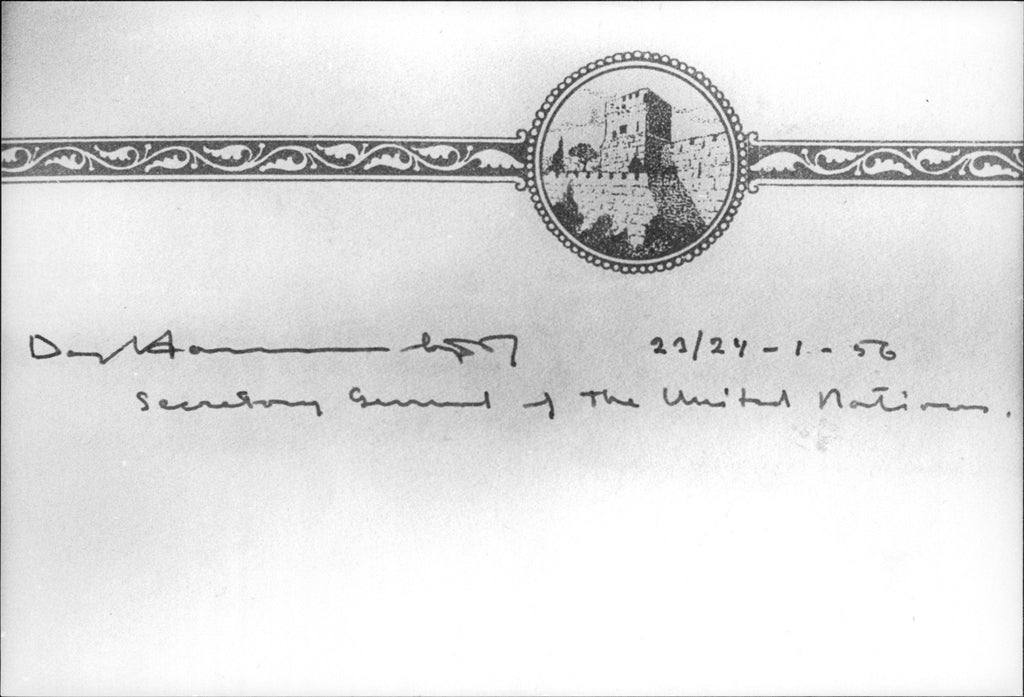 Dag Hammarskjöld 23/24 - 1 - 56
Secretary General of The United Nations.